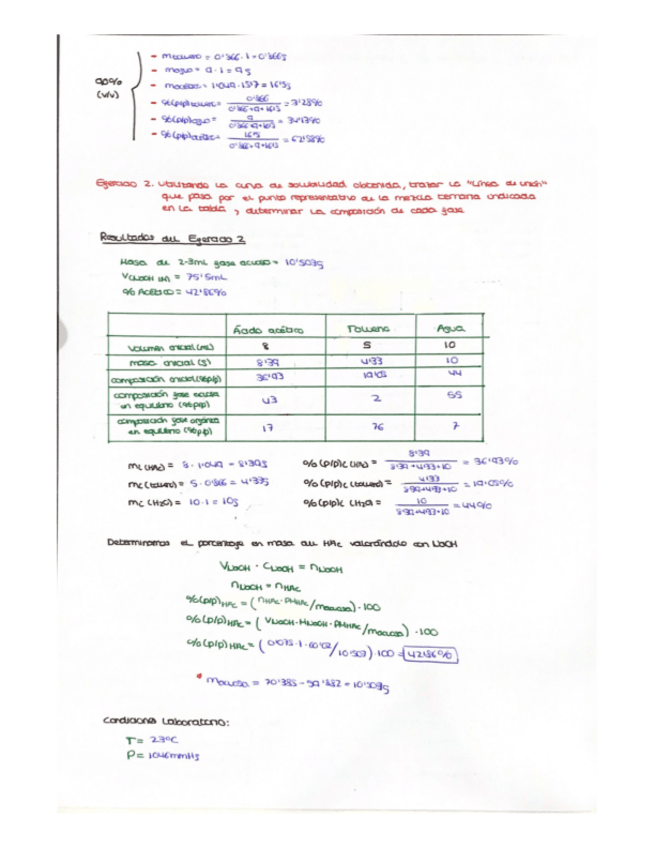 90%
(v/v)
- mtolueno = 0'866 · 1 = 0'866g
- magua = 9 · 1 = 9g
- macético = 1'049 · 15'7 = 16'5g
- %(p/p)tolueno = 0'866 / 0'866+9+16'5 = 3'28%
- %(p/p)agua = 9 / 0'866+9+16'5 = 34'13%
- %(p/p)acético = 16'5 / 0'866+9+16'5 = 62'58%
Ejercicio 2. Utilizando la curva de solubilidad obtenida, trazar la "Línea de unión"
que pasa por el punto representativo de la mezcla ternaria indicada
en la tabla, y determinar la composición de cada fase
Resultados del Ejercicio 2
Masa de 2-3mL fase acuosa = 10'503g
VNaOH (1M) = 75'5mL
% Acético = 42'86%
Ácido acético Tolueno Agua
Volumen inicial (mL) 8 5 10
masa inicial (g) 8'39 4'33 10
composición inicial (%p/p) 36'93 19'05 44
composición fase acuosa en equilibrio (%p/p) 43 2 55
composición fase orgánica en equilibrio (%p/p) 17 76 7
mi (HAc) = 8 · 1'049 = 8'39g %(p/p)i (HAc) = 8'39 / 8'39+4'33+10 = 36'93%
mi (tolueno) = 5 · 0'866 = 4'33g %(p/p)i (tolueno) = 4'33 / 8'39+4'33+10 = 19'05%
mi (H2O) = 10 · 1 = 10g %(p/p)i (H2O) = 10 / 8'39+4'33+10 = 44%
Determinamos el porcentaje en masa de HAc valorándolo con NaOH
VNaOH · CNaOH = nNaOH
nNaOH = nHAc
%(p/p)HAc = (nHAc · PMHAc / macuosa) · 100
%(p/p)HAc = (VNaOH · MNaOH · PMHAc / macuosa) · 100
%(p/p)HAc = (0'075 · 1 · 60'02 / 10'503) · 100 = 42'86%
* macuosa = 70'385 - 59'882 = 10'503g
Condiciones Laboratorio:
T = 23ºC
P = 1046mmHg